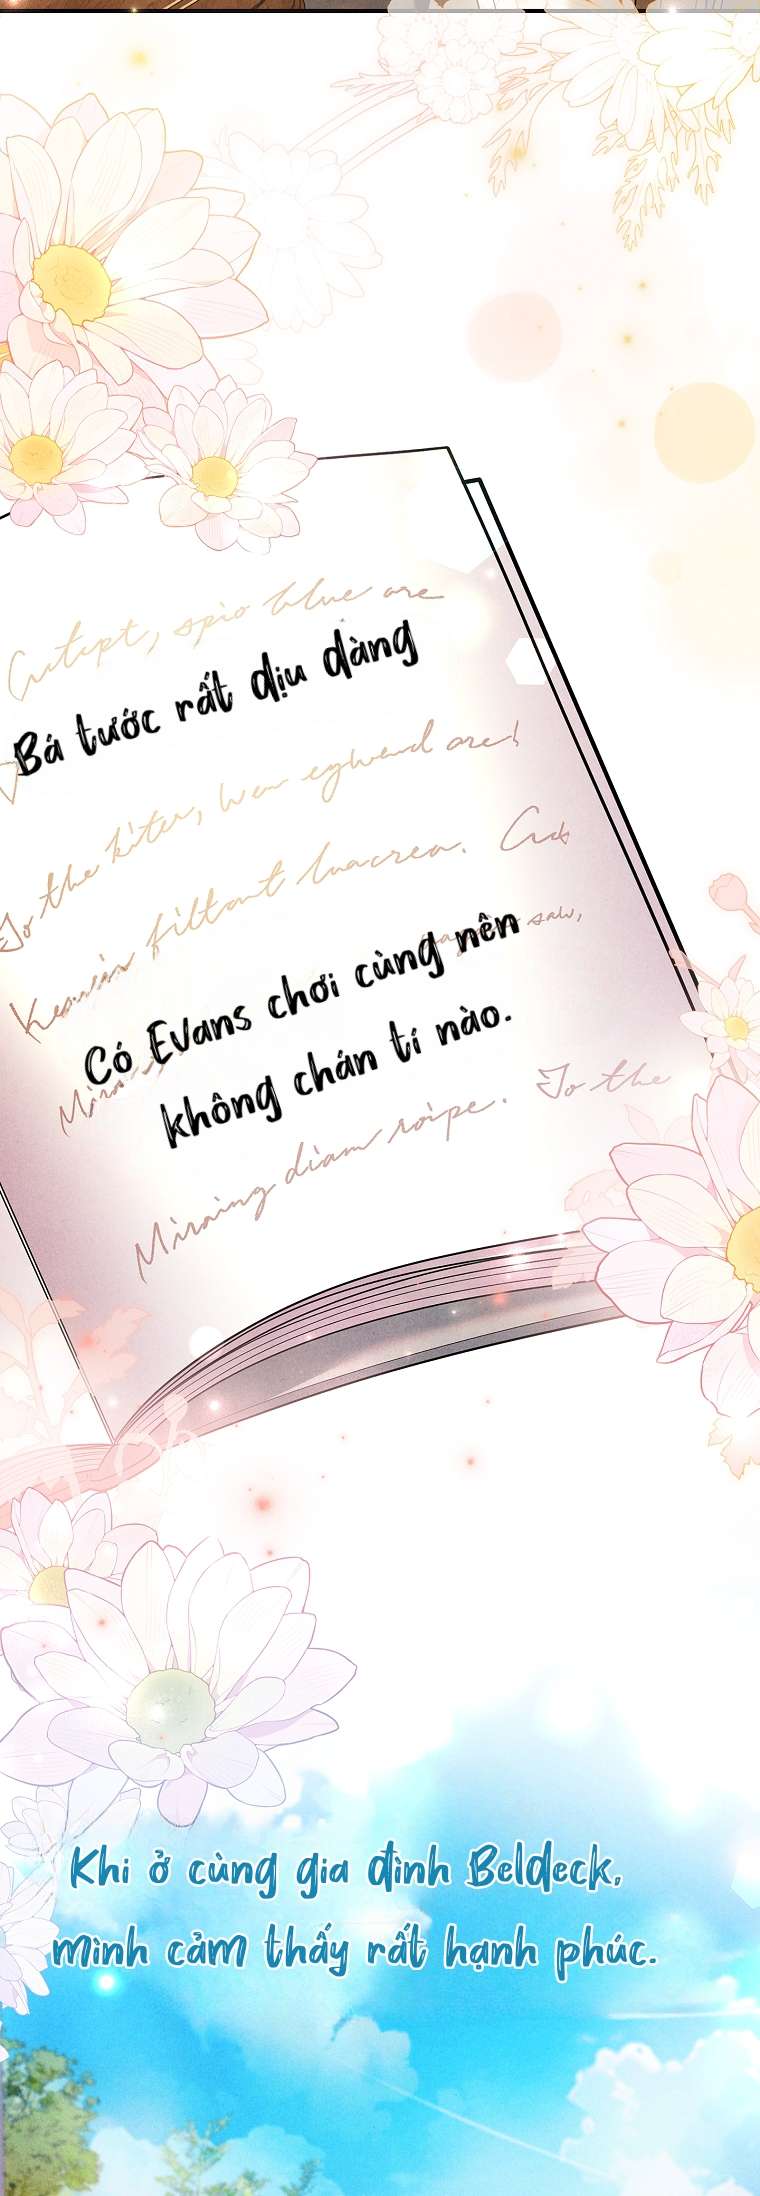 Bá tước rất dịu dàng
Có Evans chơi cùng nên
không chán tí nào.
Miraing diam roipe. To the
Khi ở cùng gia đình Beldeck,
mình cảm thấy rất hạnh phúc.